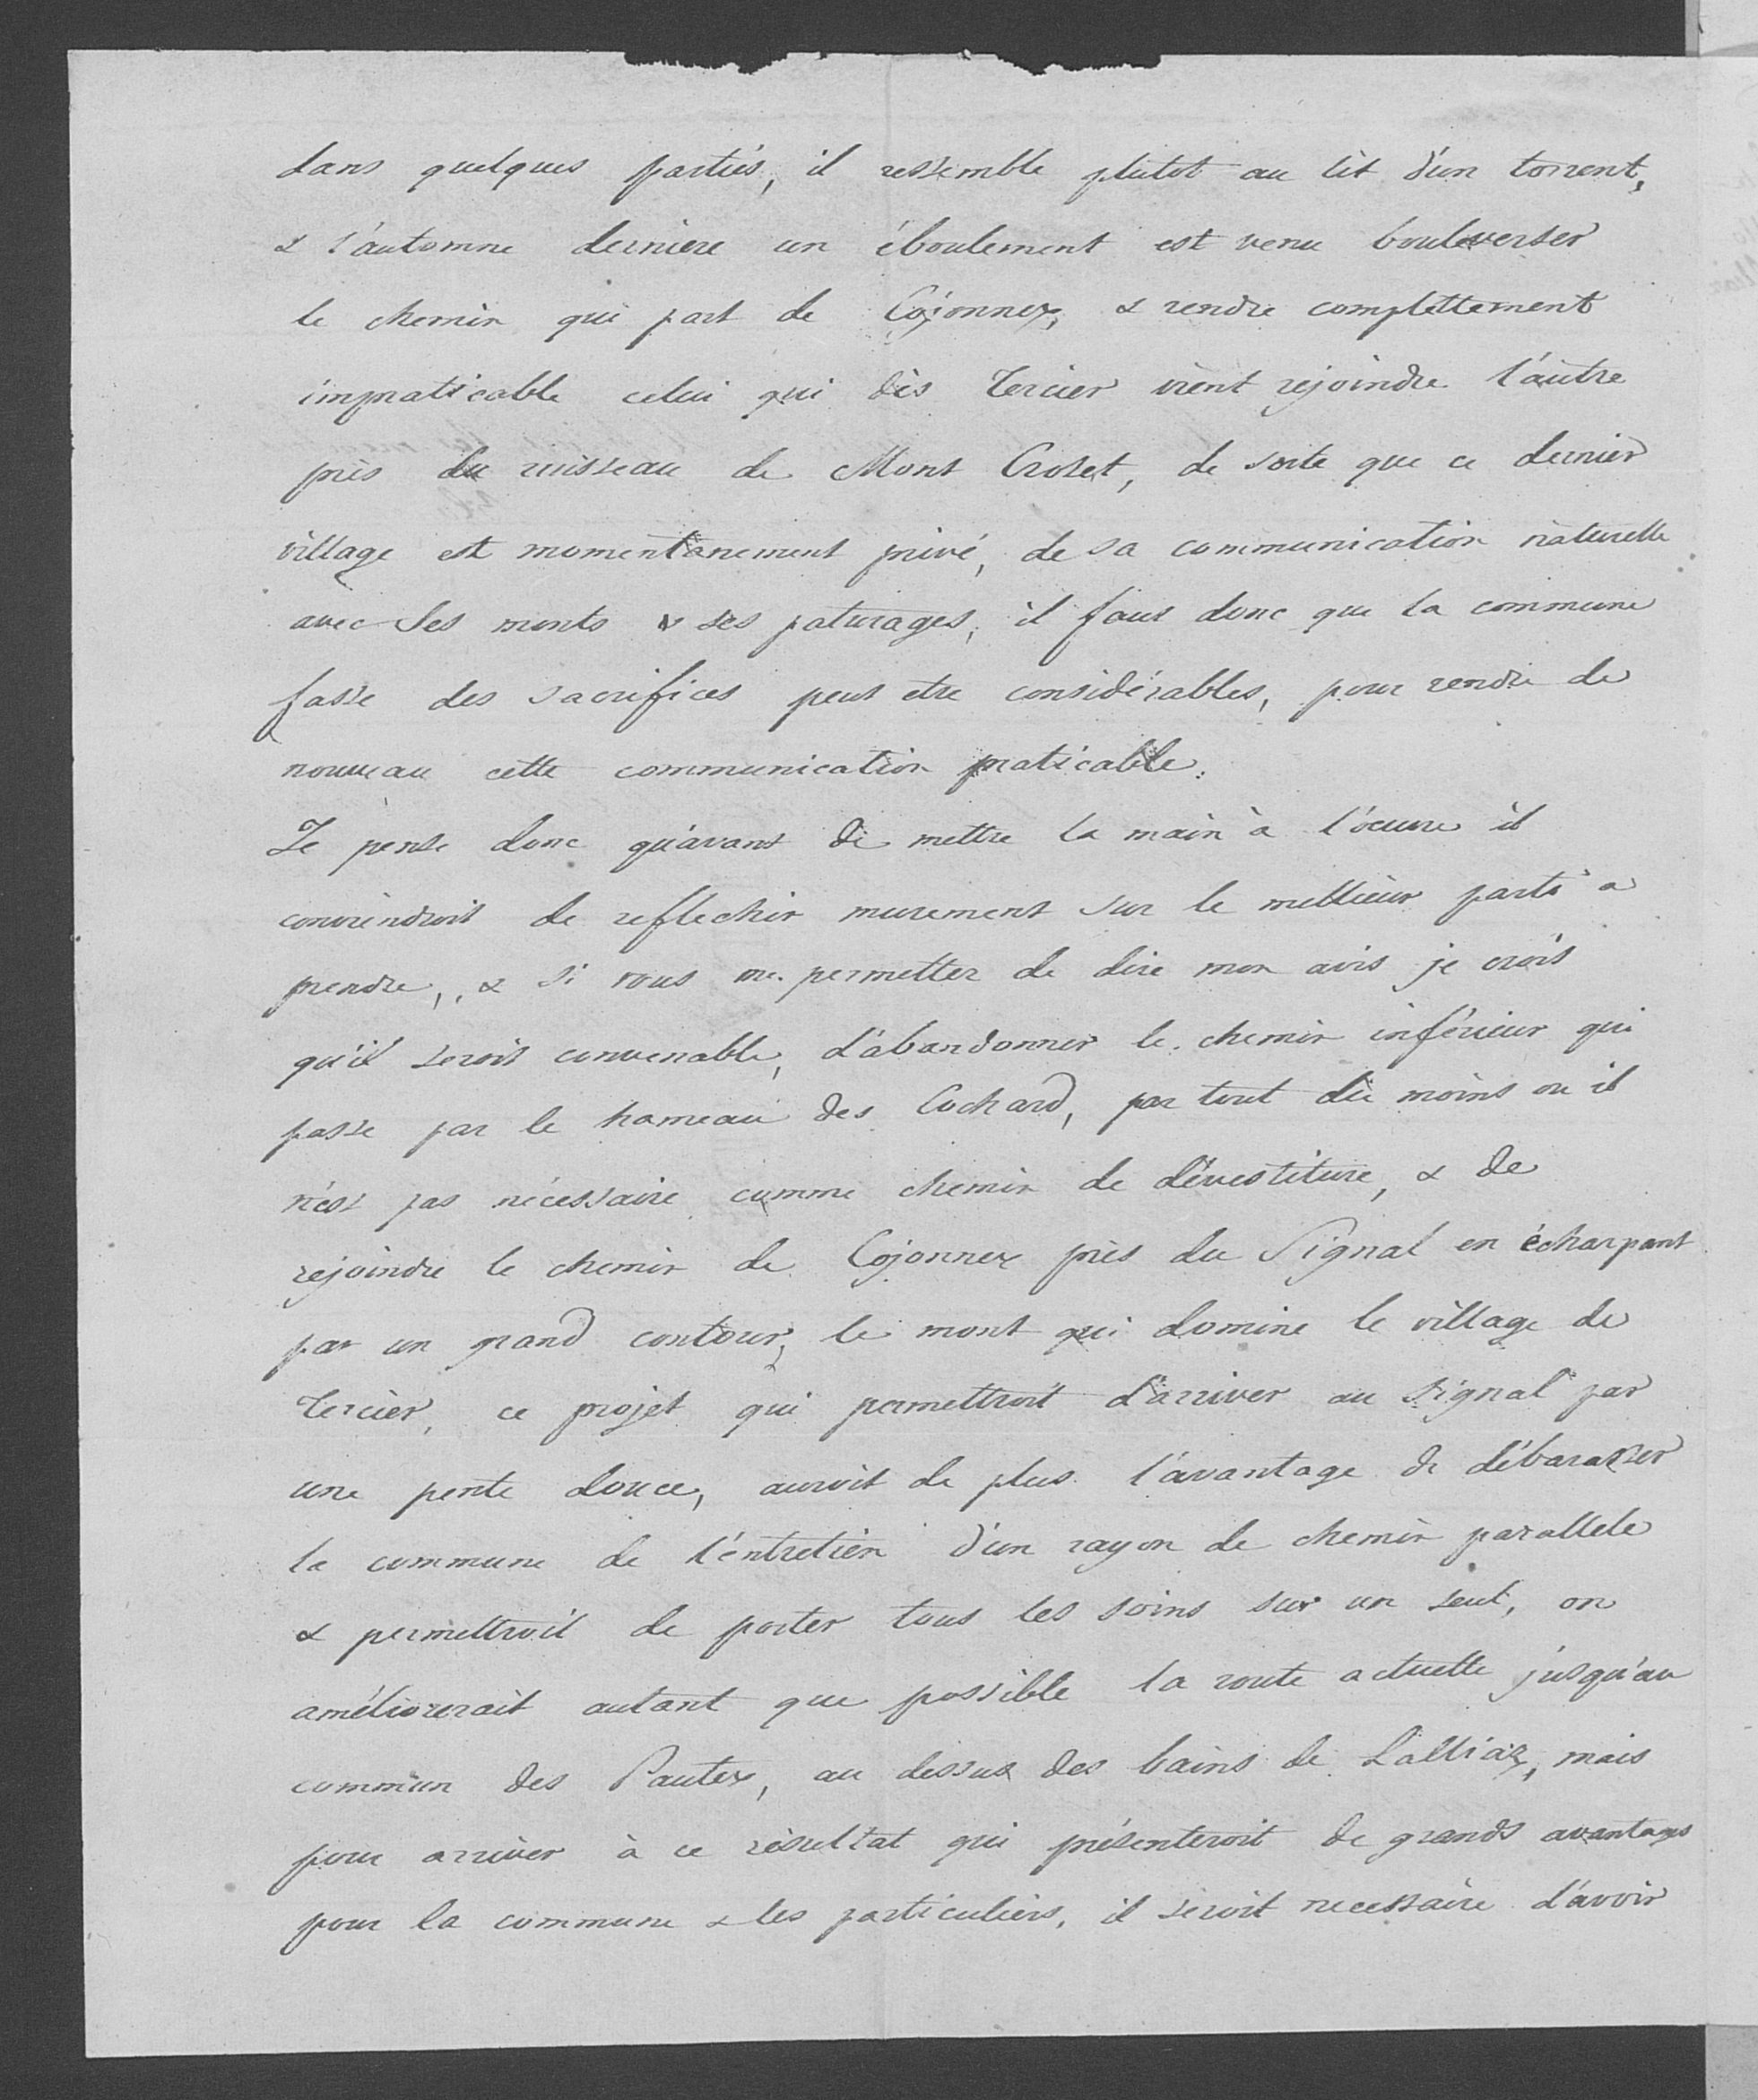 dans quelques parties, il ressemble plutot au lit d'un torrent,
& l'automne derniere un éboulement est venu bouleverser
le chemin qui part de Cojonnex, & rendre complettement
impraticable celui qui dès Tercier vient rejoindre l'autre
près du ruisseau de Mont Crozet, de sorte que ce dernier
village est momentanement privé, de sa communication naturelle
avec ses monts & ses paturages, il faut donc que la commune
fasse des sacrifices peut etre considérables, pour rendre de
nouveau cette communication praticable.
Je pense donc qu'avant de mettre la main à l'oeuvre il
conviendroit de reflechir murement sur le meilleur parti a
prendre, & si vous me permettez de dire mon avis je crois
qu'il seroit convenable, d'abandonner le chemin inférieur qui
passe par le hameau des Cochard, par tout du moins ou il
n'est pas nécessaire comme chemin de dévestiture, & de
rejoindre le chemin de Cojonnex près du Signal en écharpant
par un grand contour, le mont qui domine le village de
Tercier, ce projet qui permettroit d'arriver au signal par
une pente douce, auroit de plus l'avantage de débarasser
la commune de l'entretien d'un rayon de chemin parallele
& permettroit de porter tous les soins sur un seul, on
améliorerait autant que possible la route actuelle jusqu'au
commun des Pautex, au dessus des bains de Lalliaz, mais
pour arriver à ce résultat qui présenteroit de grands avantages
pour la commune & les particuliers, il seroit necessaire d'avoir